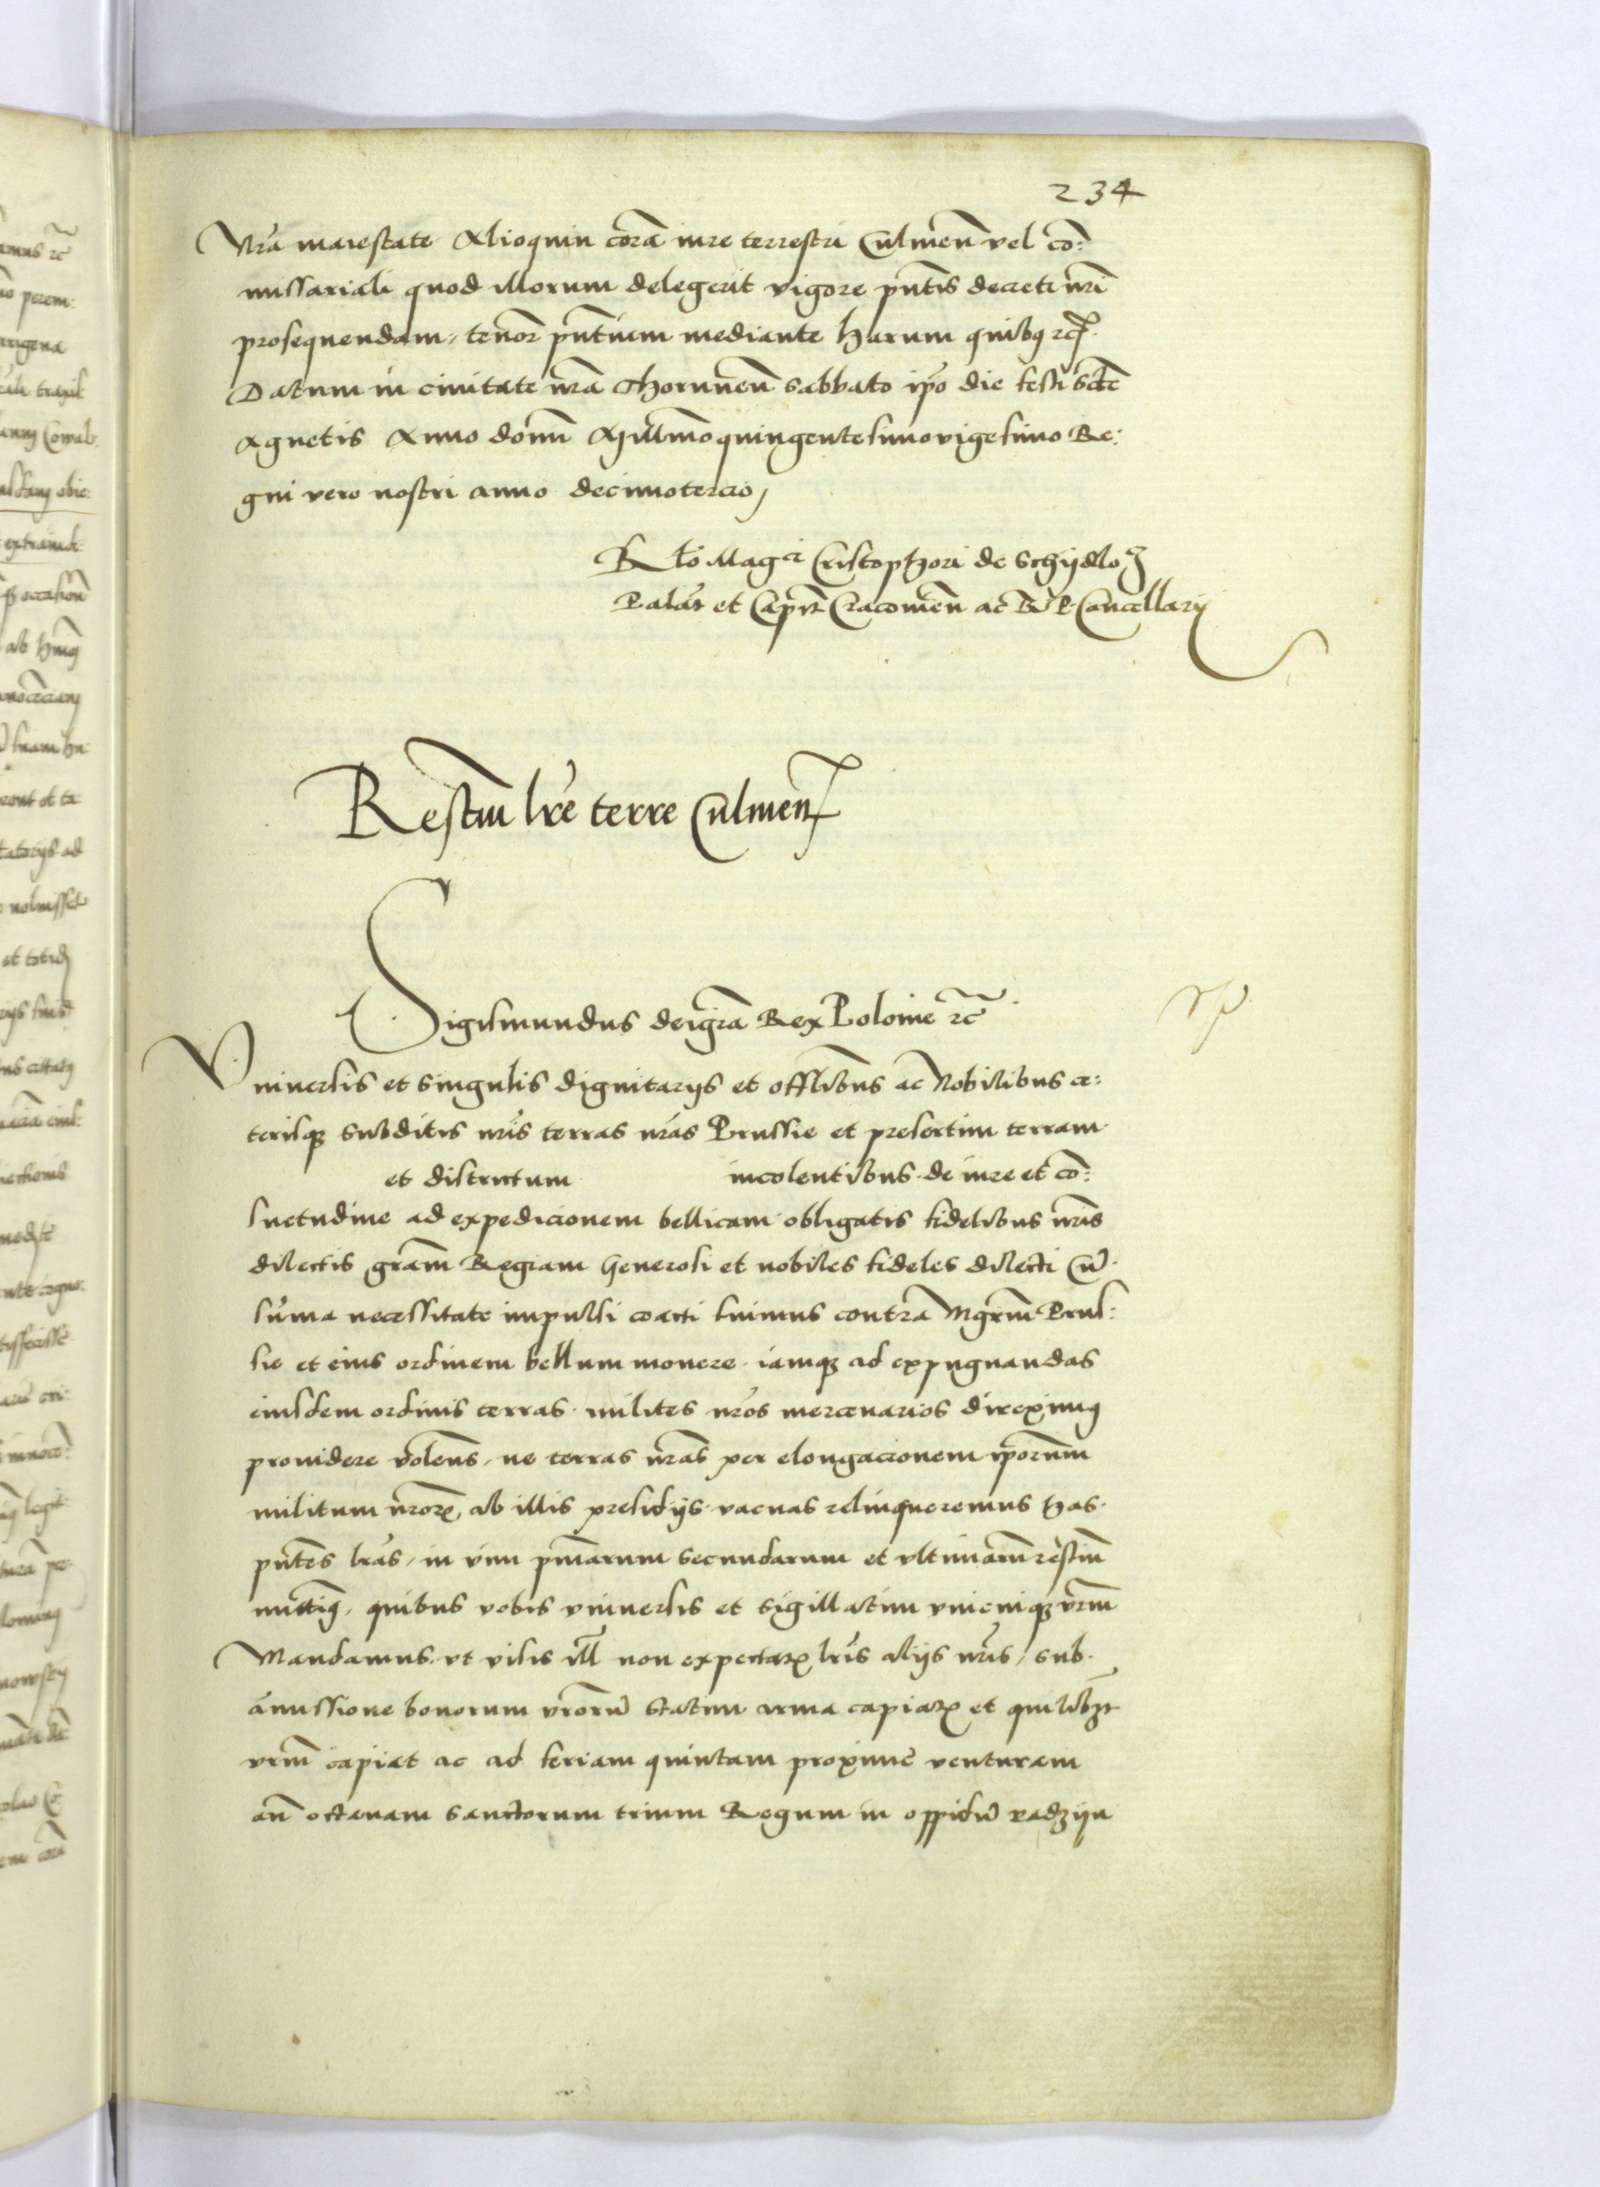 234
Nr̃a maiestate Alioquin corã iure terrestri Culmeñ vel co͂:
missariali quod illorum delegerit vigore pñtis decreti nr̃i
prosequendam, tenor̃ pñtium mediante harum quibus rc̃.
Datum in ciuitate nr̃a Thoruneñ Sabbato ip̃o die festi Sctẽ
Agnetis Anno domĩ Millm̃oquingentesimovigesimo Re:
gni vero nostri anno decimotercio,
Rl̃o Magci Cristophori de Schijdlo
Palat̃ et Capit̃ Cracouieñ ac R P Cancellarij
Restium lr̃e terre Culmeñ
Sigismundus dei gr̃a Rex Polonie rc̃
Vniuersis et singulis dignitarijs et offl̃ibus ac Nobilibus ce:
terisque subditis nr̃is terras nr̃as Prussie et presertim terram
et districtum incolentibus de iure et co͂:
suetudine ad expedicionem bellicam obligatis fidelibus nr̃is
dilectis gram̃ Regiam Generosi et nobiles fideles dilecti Cũ
sum̃a necessitate impulsi coacti fuimus contra Mgr̃m Prus:
sie et eius ordinem bellum mouere iamque ad expugnandas
eiusdem ordinis terras milites nr̃os mercenarios direximus
prouidere volens, ne terras nr̃as per elongacionem ip̃orum
militum nr̃orum, ab illis presidijs vacuas relinqueremus has
pñtes lr̃as, in vim pm̃arum secundarum et vltimarum restium
mittimus, quibus vobis vniuersis et sigillatim vnicuique vr̃m
Mandamus vt visis ill̃ non expectatis lr̃is alijs nr̃is, sub
amissione bonorum vr̃orum statim arma capiatis et quilibet
vr̃m capiat ac ad feriam quintam proxime venturam
añ octauam sanctorum trium Regum in oppidũ radzijn